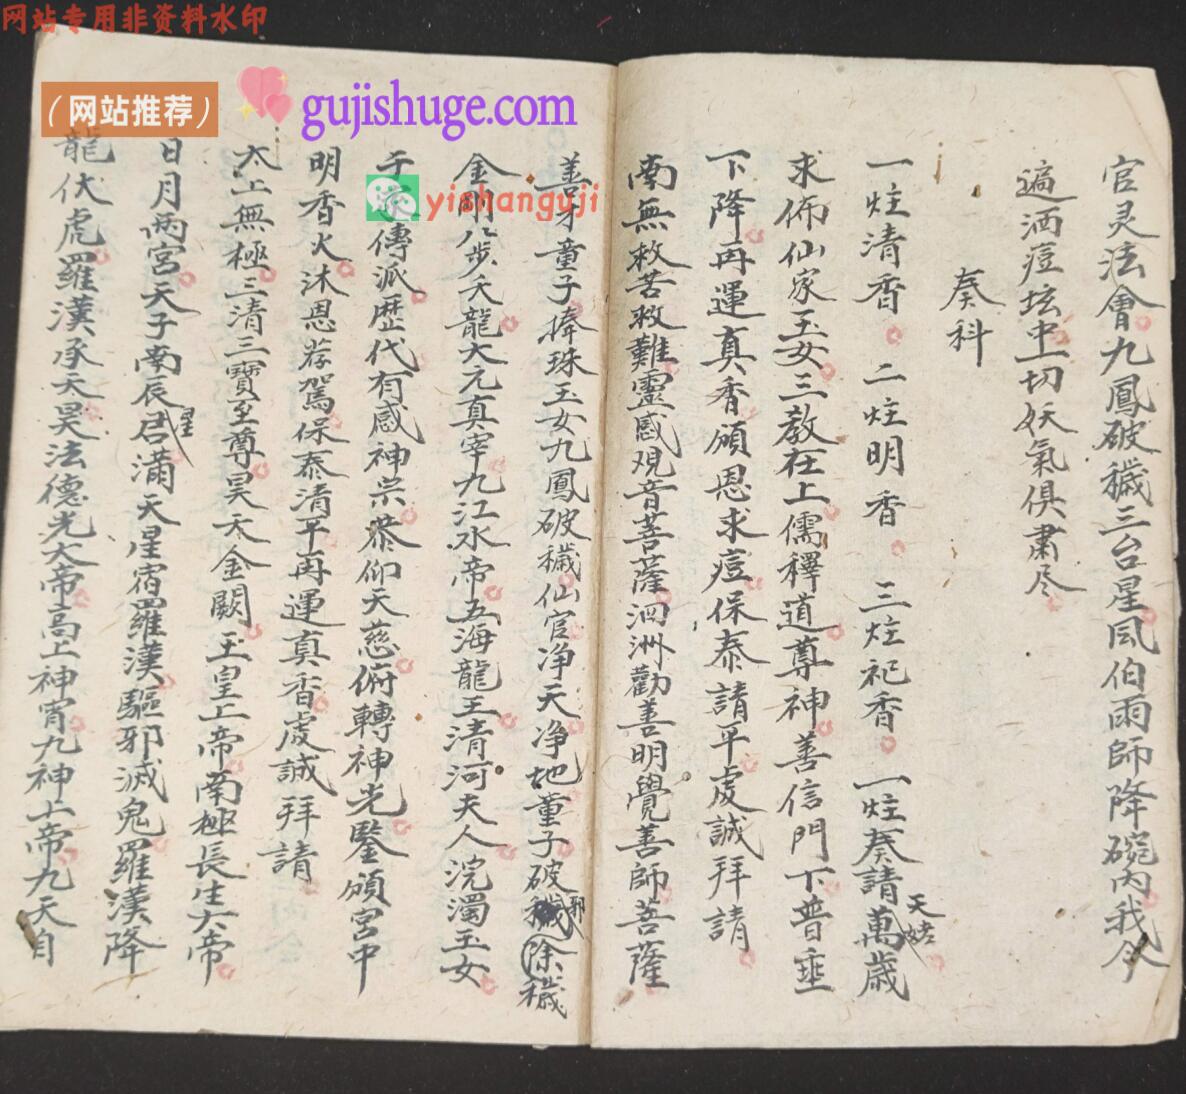 网站专用非资料水印
(网站推荐)
gujishuge.com
yishanguji
官灵法會九鳳破穢三台星風伯雨師降碗内我今
遍洒痘坛中一切妖氣俱肅尽
奏科
一炷清香 二炷明香 三炷祀香 一炷奏請萬歲天姥
求佈仙家玉女三教在上儒釋道尊神善信門下普垂
下降再運真香頒恩求痘保泰請平虔誠拜請
南無救苦救難靈感观音菩薩泗洲勸善明覺善師菩薩
善才童子捧珠玉女九鳳破穢仙官净天净地童子破邪除穢
金剛八步天龍大元真宰九江水帝五海龍王清河夫人浣濁玉女
千家傳派歷代有感神祟恭仰天慈俯轉神光鑒頒宫中
明香火沐恩荐駕保泰清平再運真香虔誠拜請
太上無極三清三寶至尊昊天金闕玉皇上帝南極長生大帝
日月兩宮天子南辰君星滿天星宿羅漢驅邪滅鬼羅漢降
龍伏虎羅漢承天昊法德光大帝高上神宵九神上帝九天自